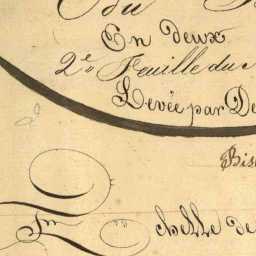 du
En deux
2e Feuille du
Levée par De
Bis
Echelle de